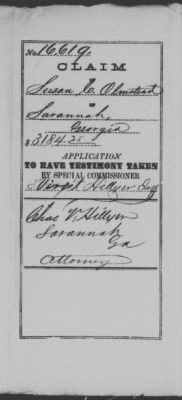 No. 16619.
CLAIM
Susan C. Olmstead
Savannah,
Georgia
$3184.25
APPLICATION
TO HAVE TESTIMONY TAKEN
BY SPECIAL COMMISSIONER
Virgil Hillyer Esq
Chas V. Hillyer
Savannah
Ga
Attorney